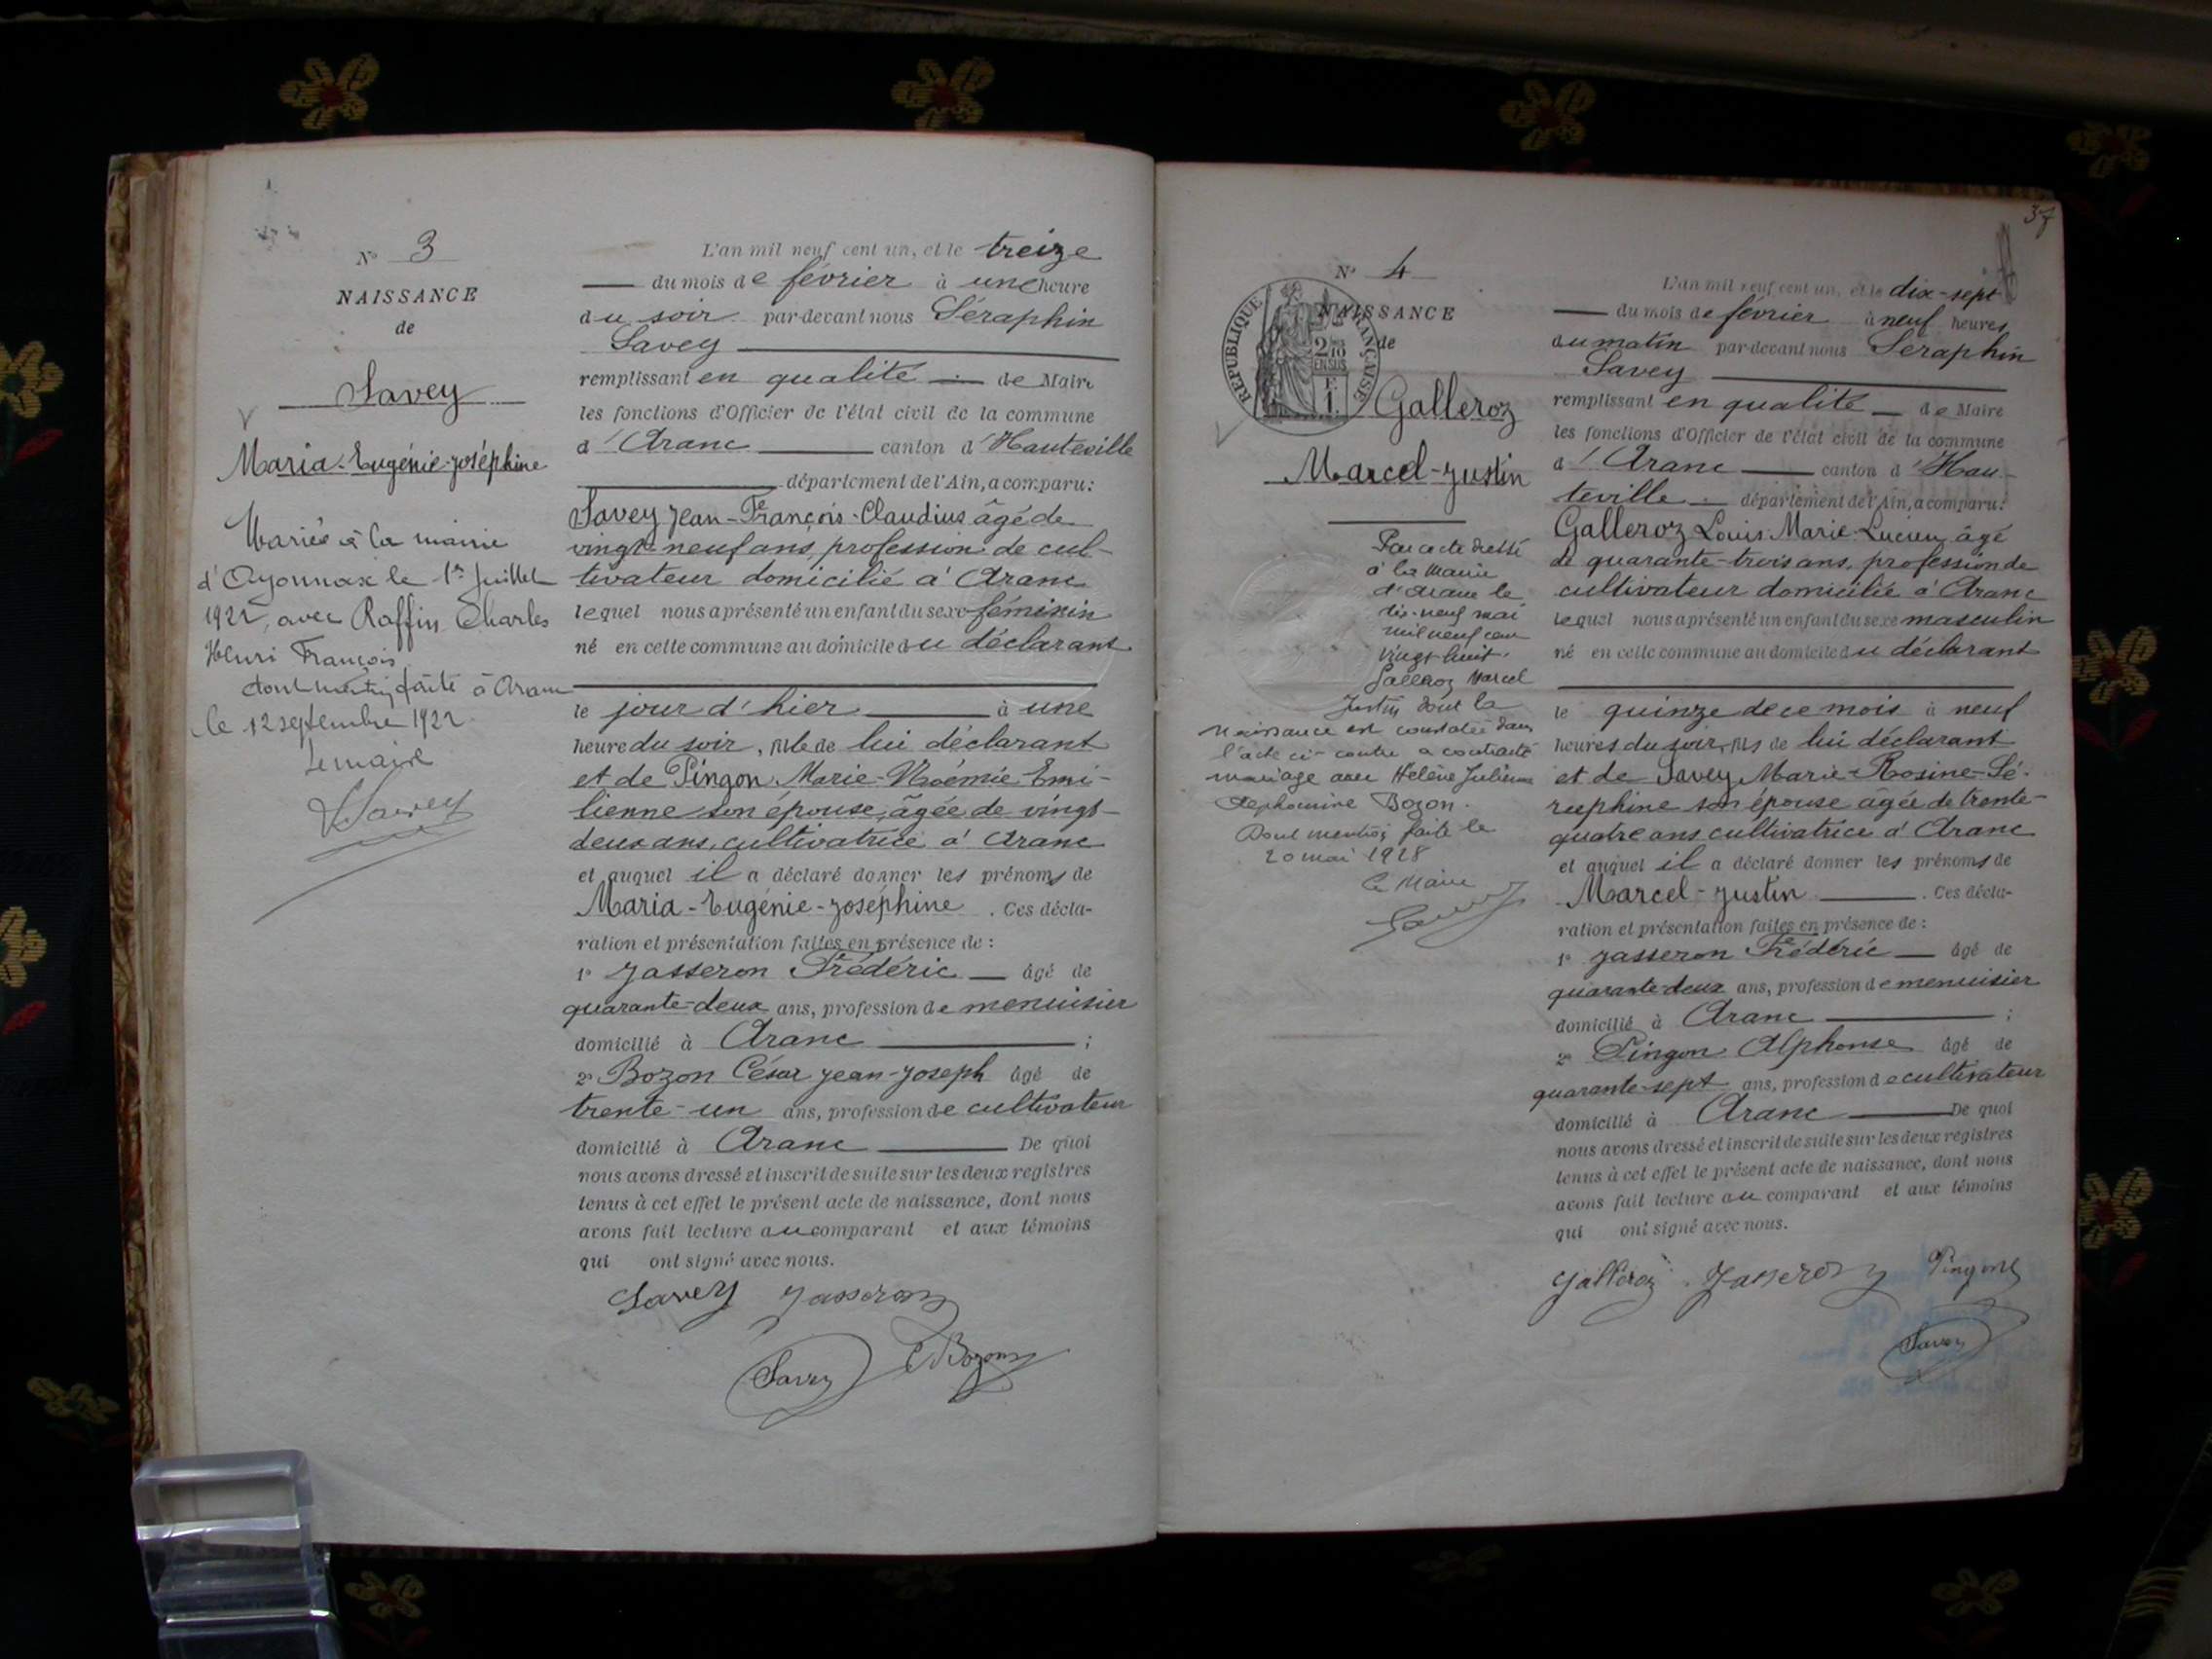 N° 3
NAISSANCE
de
Savey
Maria-Eugénie-Joséphine
Mariée à la mairie
d'Oyonnax le 1er Juillet
1922, avec Raffin Charles
Henri François,
dont mention faite à Aranc
le 12 septembre 1922.
Le maire
Savey
L'an mil neuf cent un, et le treize
du mois de février à une heure
du soir par-devant nous Séraphin
Savey
remplissant en qualité de Maire
les fonctions d'Officier de l'état civil de la commune
d'Aranc canton d'Hauteville
département de l'Ain, a comparu:
Savey Jean-François-Claudius âgé de
vingt-neuf ans, profession de cul-
tivateur domicilié à Aranc
lequel nous a présenté un enfant du sexe féminin
né en cette commune au domicile du déclarant
le jour d'hier à une
heure du soir, fille de lui déclarant
et de Pingon Marie-Noémie Emi-
lienne son épouse, âgée de vingt-
deux ans, cultivatrice à Aranc
et auquel il a déclaré donner les prénoms de
Maria-Eugénie-Joséphine. Ces décla-
ration et présentation faites en présence de :
1° Jasseron Frédéric âgé de
quarante-deux ans, profession de menuisier
domicilié à Aranc ;
2° Bozon César Jean-Joseph âgé de
trente-un ans, profession de cultivateur
domicilié à Aranc De quoi
nous avons dressé et inscrit de suite sur les deux registres
tenus à cet effet le présent acte de naissance, dont nous
avons fait lecture au comparant et aux témoins
qui ont signé avec nous.
Savey Jasseron
Savey C Bozon
37
N° 4
NAISSANCE
de
REPUBLIQUE FRANÇAISE
2/10
EN SUS
F.
1.
Galleroz
Marcel-Justin
Par acte dressé
à la Mairie
d'Aranc le
dix-neuf mai
mil neuf cent
vingt-huit.
Galleroz Marcel
Justin dont la
naissance est constatée dans
l'acte ci-contre a contracté
mariage avec Hélène Julienne
Bozon.
Dont mention faite le
20 mai 1928
Le Maire
Savey
L'an mil neuf cent un, et le dix-sept
du mois de février à neuf heures
du matin par-devant nous Séraphin
Savey
remplissant en qualité de Maire
les fonctions d'Officier de l'état civil de la commune
d'Aranc canton d'Hau-
teville département de l'Ain, a comparu:
Galleroz Louis-Marie-Lucien âgé
de quarante-trois ans, profession de
cultivateur domicilié à Aranc
lequel nous a présenté un enfant du sexe masculin
né en cette commune au domicile du déclarant
le quinze de ce mois à neuf
heures du soir, fils de lui déclarant
et de Savey Marie-Rosine-Sé-
raphine son épouse âgée de trente-
quatre ans cultivatrice à Aranc
et auquel il a déclaré donner les prénoms de
Marcel-Justin. Ces décla-
ration et présentation faites en présence de :
1° Jasseron Frédéric âgé de
quarante-deux ans, profession de menuisier
domicilié à Aranc ;
2° Pingon Alphonse âgé de
quarante-sept ans, profession de cultivateur
domicilié à Aranc De quoi
nous avons dressé et inscrit de suite sur les deux registres
tenus à cet effet le présent acte de naissance, dont nous
avons fait lecture au comparant et aux témoins
qui ont signé avec nous.
Galléroz Jasseron Pingon
Savey